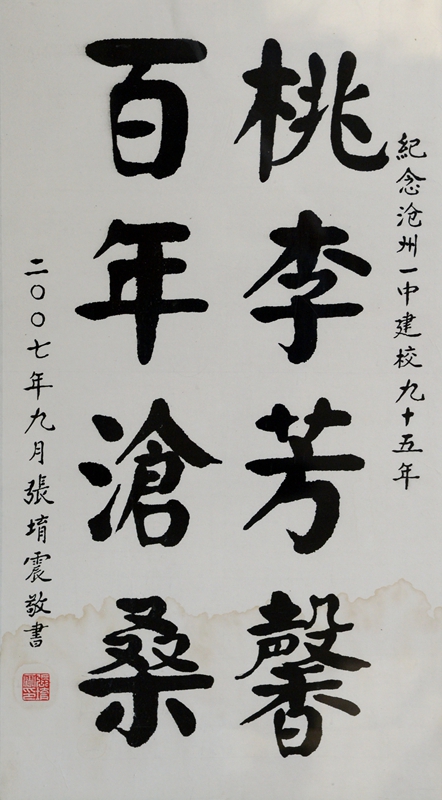 紀念沧州一中建校九十五年
桃李芳馨
百年滄桑
二〇〇七年九月張堉震敬書